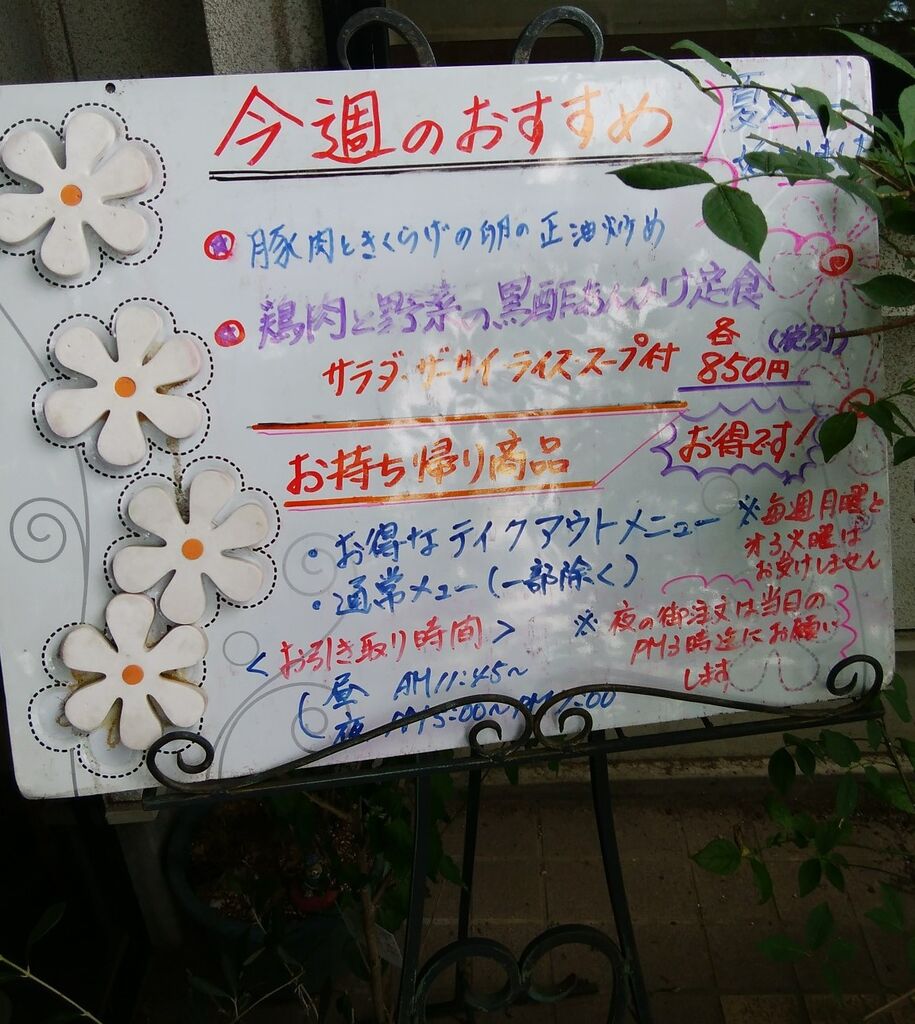 今週のおすすめ
夏メニュー
豚肉ときくらげの卵の正油炒め
鶏肉と野菜の黒酢あんかけ定食
サラダ・ザーサイ・ライス・スープ付 各850円(税別)
お持ち帰り商品
お得です!
・お得なテイクアウトメニュー
・通常メュー(一部除く)
※毎週月曜と
オ3火曜は
お受けしません
<お引き取り時間>
昼 AM11:45~
夜 PM5:00~PM7:00
※夜の御注文は当日の
PM3時迄にお願い
します